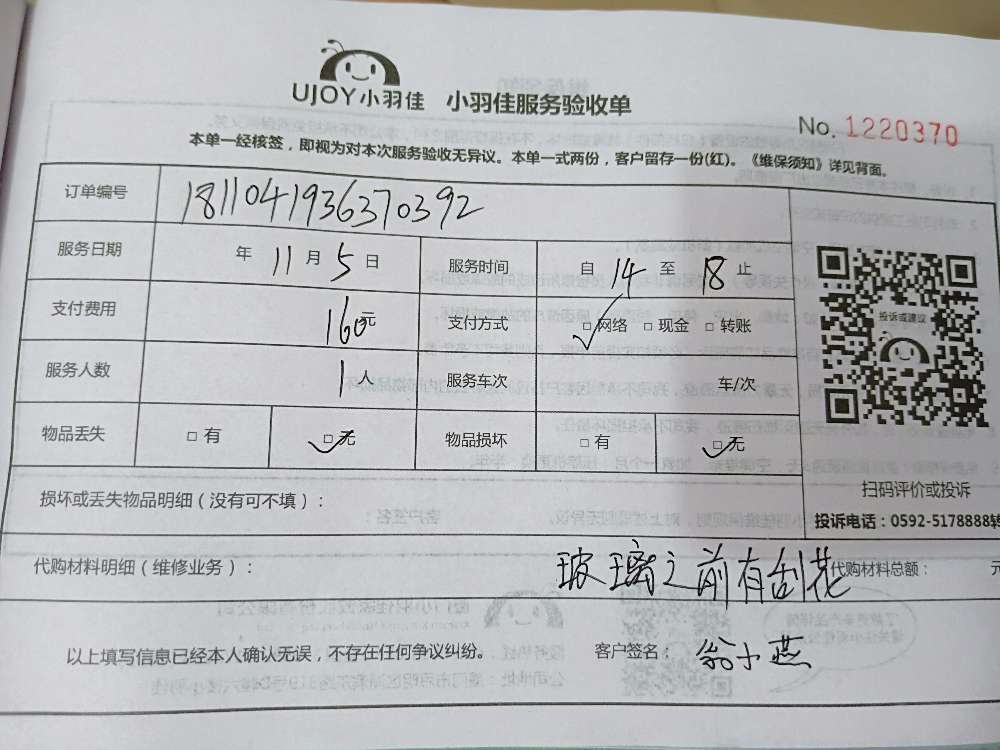 UJOY小羽佳 小羽佳服务验收单
No. 1220370
本单一经核签，即视为对本次服务验收无异议。本单一式两份，客户留存一份(红)。《维保须知》详见背面。
订单编号 1811041936370392
服务日期 年 11 月 5 日 服务时间 自 14 至 18 止
支付费用 160元 支付方式 □网络 □现金 □转账
投诉或建议
服务人数 1人 服务车次 车/次
物品丢失 □有 □无 物品损坏 □有 □无
扫码评价或投诉
损坏或丢失物品明细（没有可不填）：
投诉电话：0592-5178888转
代购材料明细（维修业务）： 玻璃之前有刮花 代购材料总额： 元
以上填写信息已经本人确认无误，不存在任何争议纠纷。 客户签名： 翁小燕